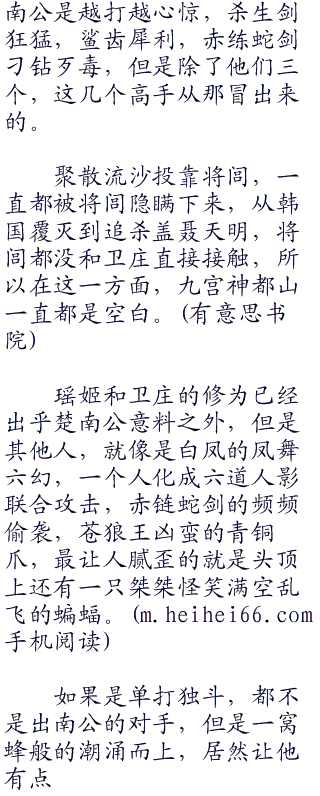 南公是越打越心惊，杀生剑
狂猛，鲨齿犀利，赤练蛇剑
刁钻歹毒，但是除了他们三
个，这几个高手从那冒出来
的。
聚散流沙投靠将闾，一
直都被将闾隐瞒下来，从韩
国覆灭到追杀盖聂天明，将
闾都没和卫庄直接接触，所
以在这一方面，九宫神都山
一直都是空白。(有意思书
院)
瑶姬和卫庄的修为已经
出乎楚南公意料之外，但是
其他人，就像是白凤的凤舞
六幻，一个人化成六道人影
联合攻击，赤链蛇剑的频频
偷袭，苍狼王凶蛮的青铜
爪，最让人腻歪的就是头顶
上还有一只桀桀怪笑满空乱
飞的蝙蝠。(m.heihei66.com
手机阅读)
如果是单打独斗，都不
是出南公的对手，但是一窝
蜂般的潮涌而上，居然让他
有点